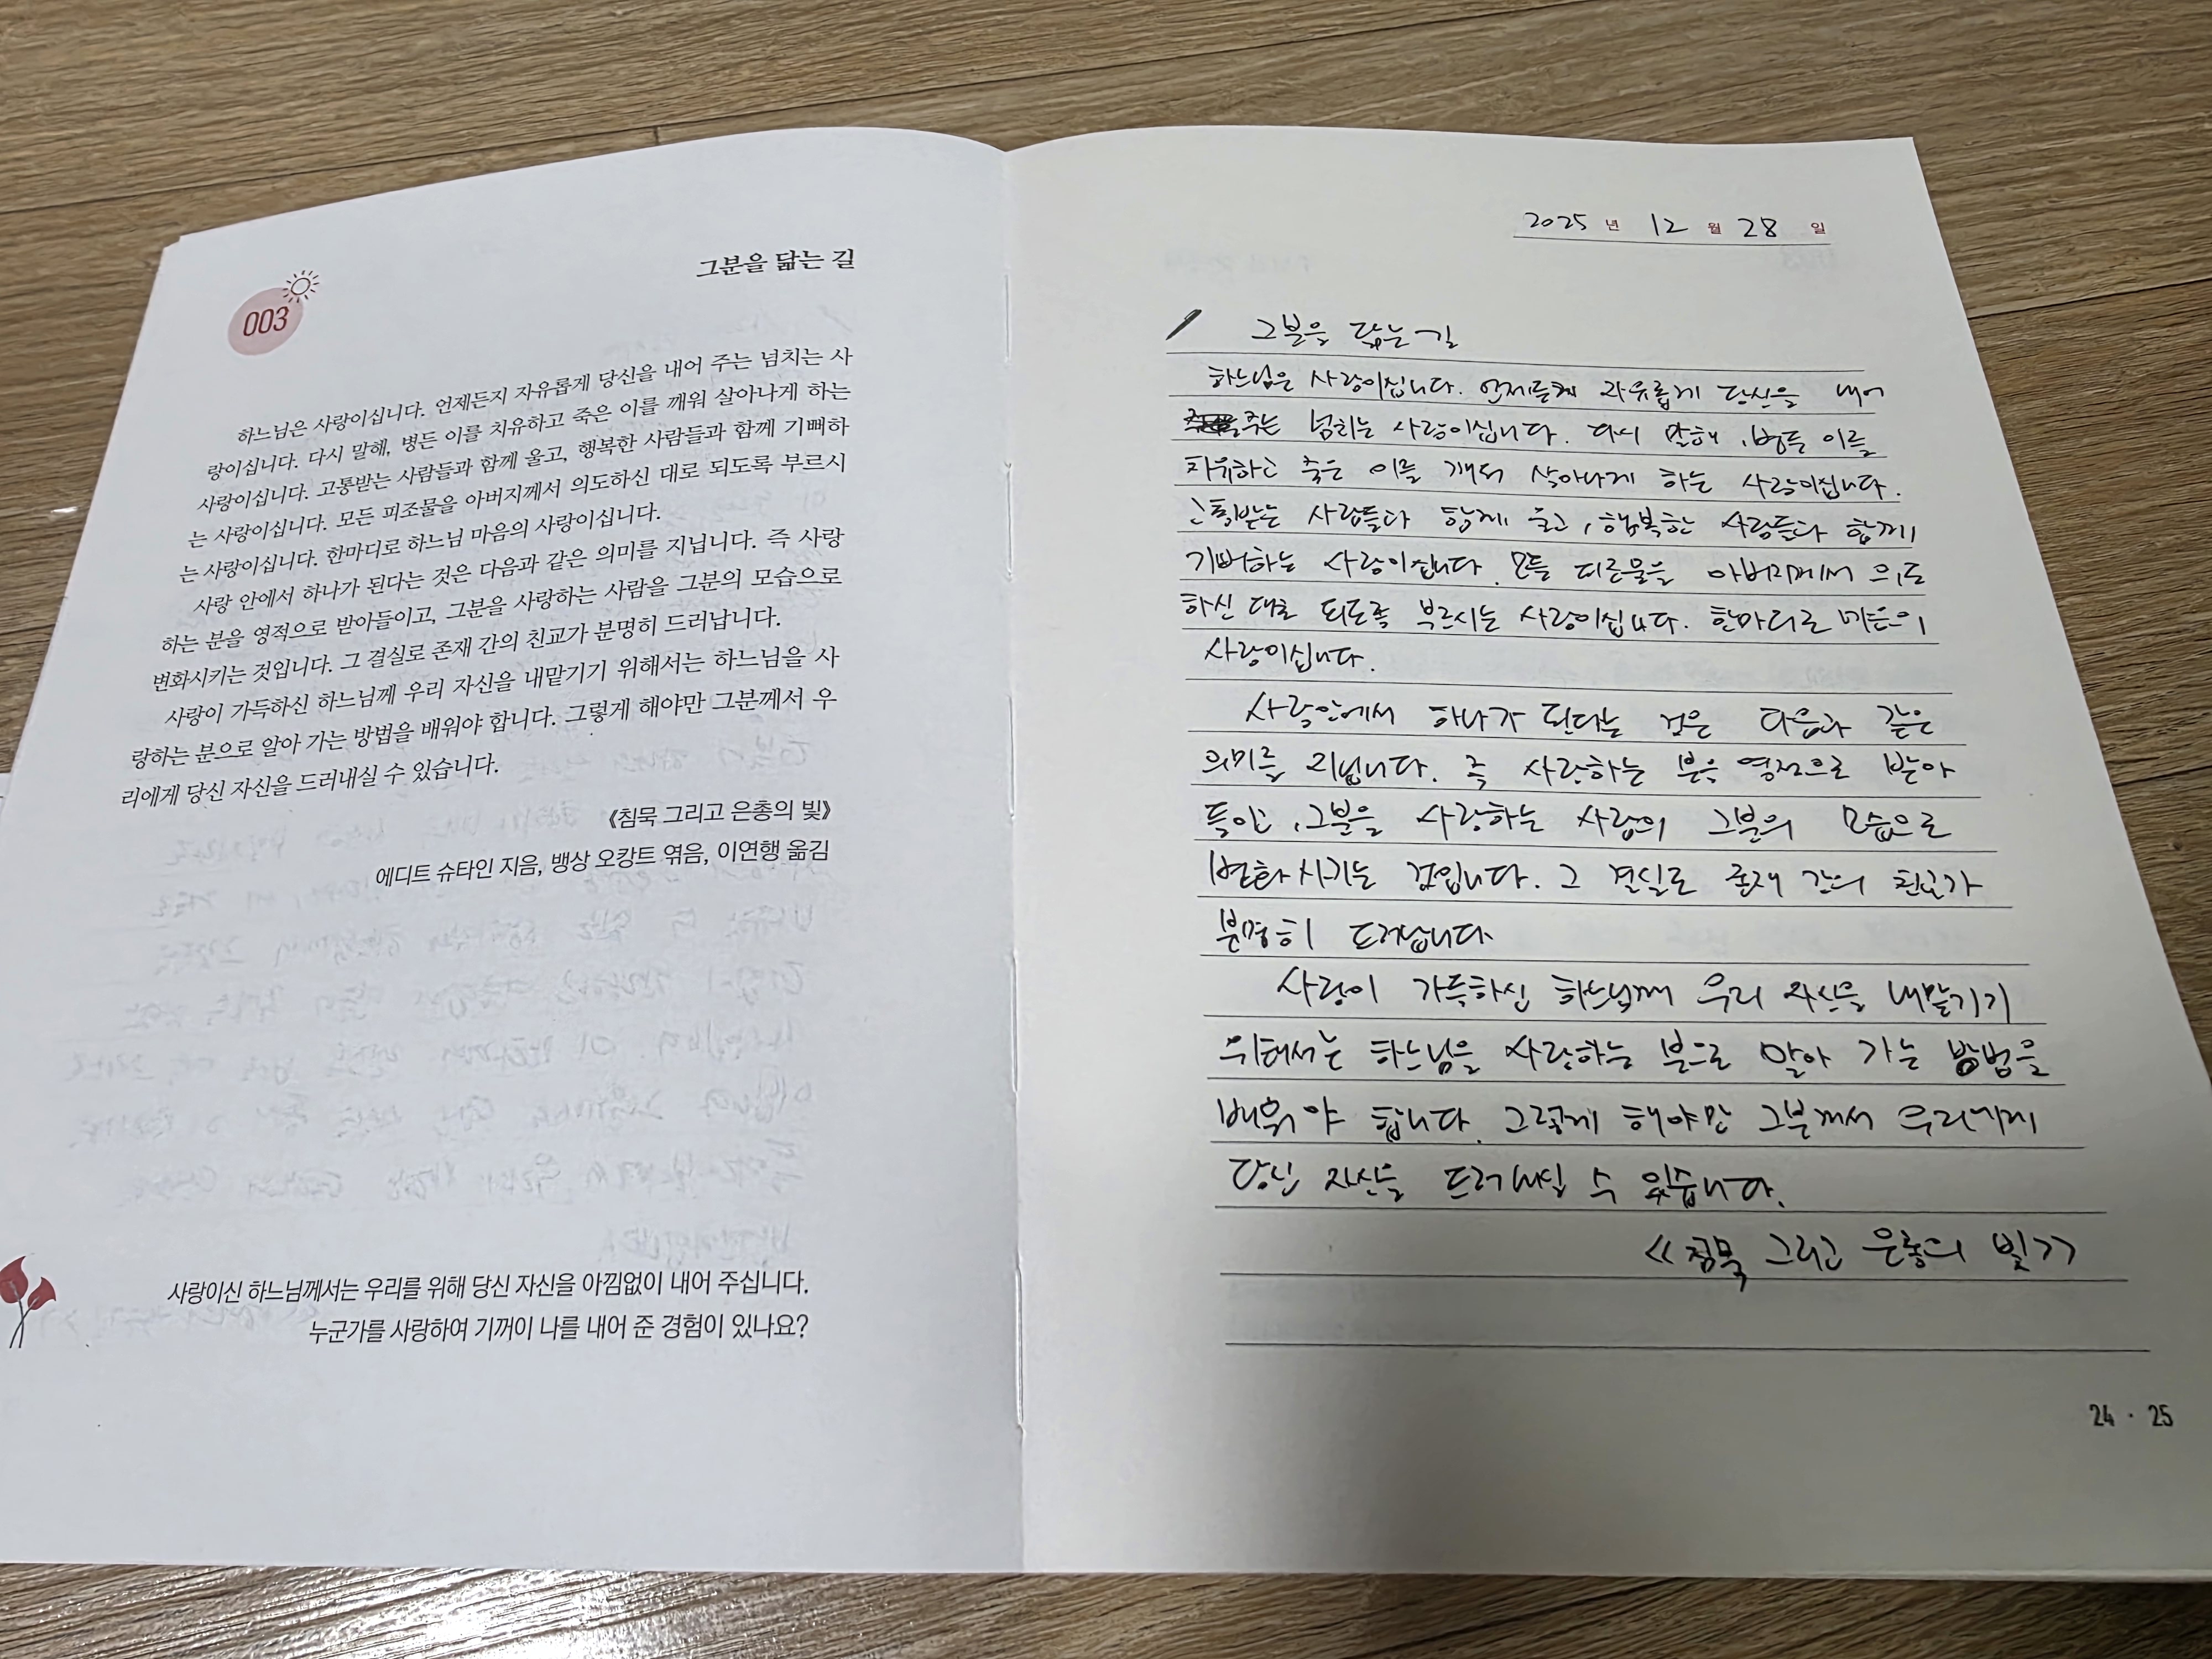 003
그분을 닮는 길
하느님은 사랑이십니다. 언제든지 자유롭게 당신을 내어 주는 넘치는 사
랑이십니다. 다시 말해, 병든 이를 치유하고 죽은 이를 깨워 살아나게 하는
사랑이십니다. 고통받는 사람들과 함께 울고, 행복한 사람들과 함께 기뻐하
는 사랑이십니다. 모든 피조물을 아버지께서 의도하신 대로 되도록 부르시
는 사랑이십니다. 한마디로 하느님 마음의 사랑이십니다.
사랑 안에서 하나가 된다는 것은 다음과 같은 의미를 지닙니다. 즉 사랑
하는 분을 영적으로 받아들이고, 그분을 사랑하는 사람을 그분의 모습으로
변화시키는 것입니다. 그 결실로 존재 간의 친교가 분명히 드러납니다.
사랑이 가득하신 하느님께 우리 자신을 내맡기기 위해서는 하느님을 사
랑하는 분으로 알아 가는 방법을 배워야 합니다. 그렇게 해야만 그분께서 우
리에게 당신 자신을 드러내실 수 있습니다.
《침묵 그리고 은총의 빛》
에디트 슈타인 지음, 뱅상 오캉트 엮음, 이연행 옮김
사랑이신 하느님께서는 우리를 위해 당신 자신을 아낌없이 내어 주십니다.
누군가를 사랑하여 기꺼이 나를 내어 준 경험이 있나요?
2025 년 12 월 28 일
그분을 닮는 길
하느님은 사랑이십니다. 언제든지 자유롭게 당신을 내어
주는 넘치는 사랑이십니다. 다시 말해, 병든 이를
치유하고 죽은 이를 깨워 살아나게 하는 사랑이십니다.
고통받는 사람들과 함께 울고, 행복한 사람들과 함께
기뻐하는 사랑이십니다. 모든 피조물을 아버지께서 의도
하신 대로 되도록 부르시는 사랑이십니다. 한마디로 마음의
사랑이십니다.
사랑안에서 하나가 된다는 것은 다음과 같은
의미를 지닙니다. 즉 사랑하는 분을 영적으로 받아
들이고, 그분을 사랑하는 사람의 그분의 모습으로
변화시키는 것입니다. 그 결실로 존재 간의 친교가
분명히 드러납니다.
사랑이 가득하신 하느님께 우리 자신을 내맡기기
위해서는 하느님을 사랑하는 분으로 알아 가는 방법을
배워야 합니다. 그렇게 해야만 그분께서 우리에게
당신 자신을 드러내실 수 있습니다.
<<침묵 그리고 은총의 빛>>
24 · 25